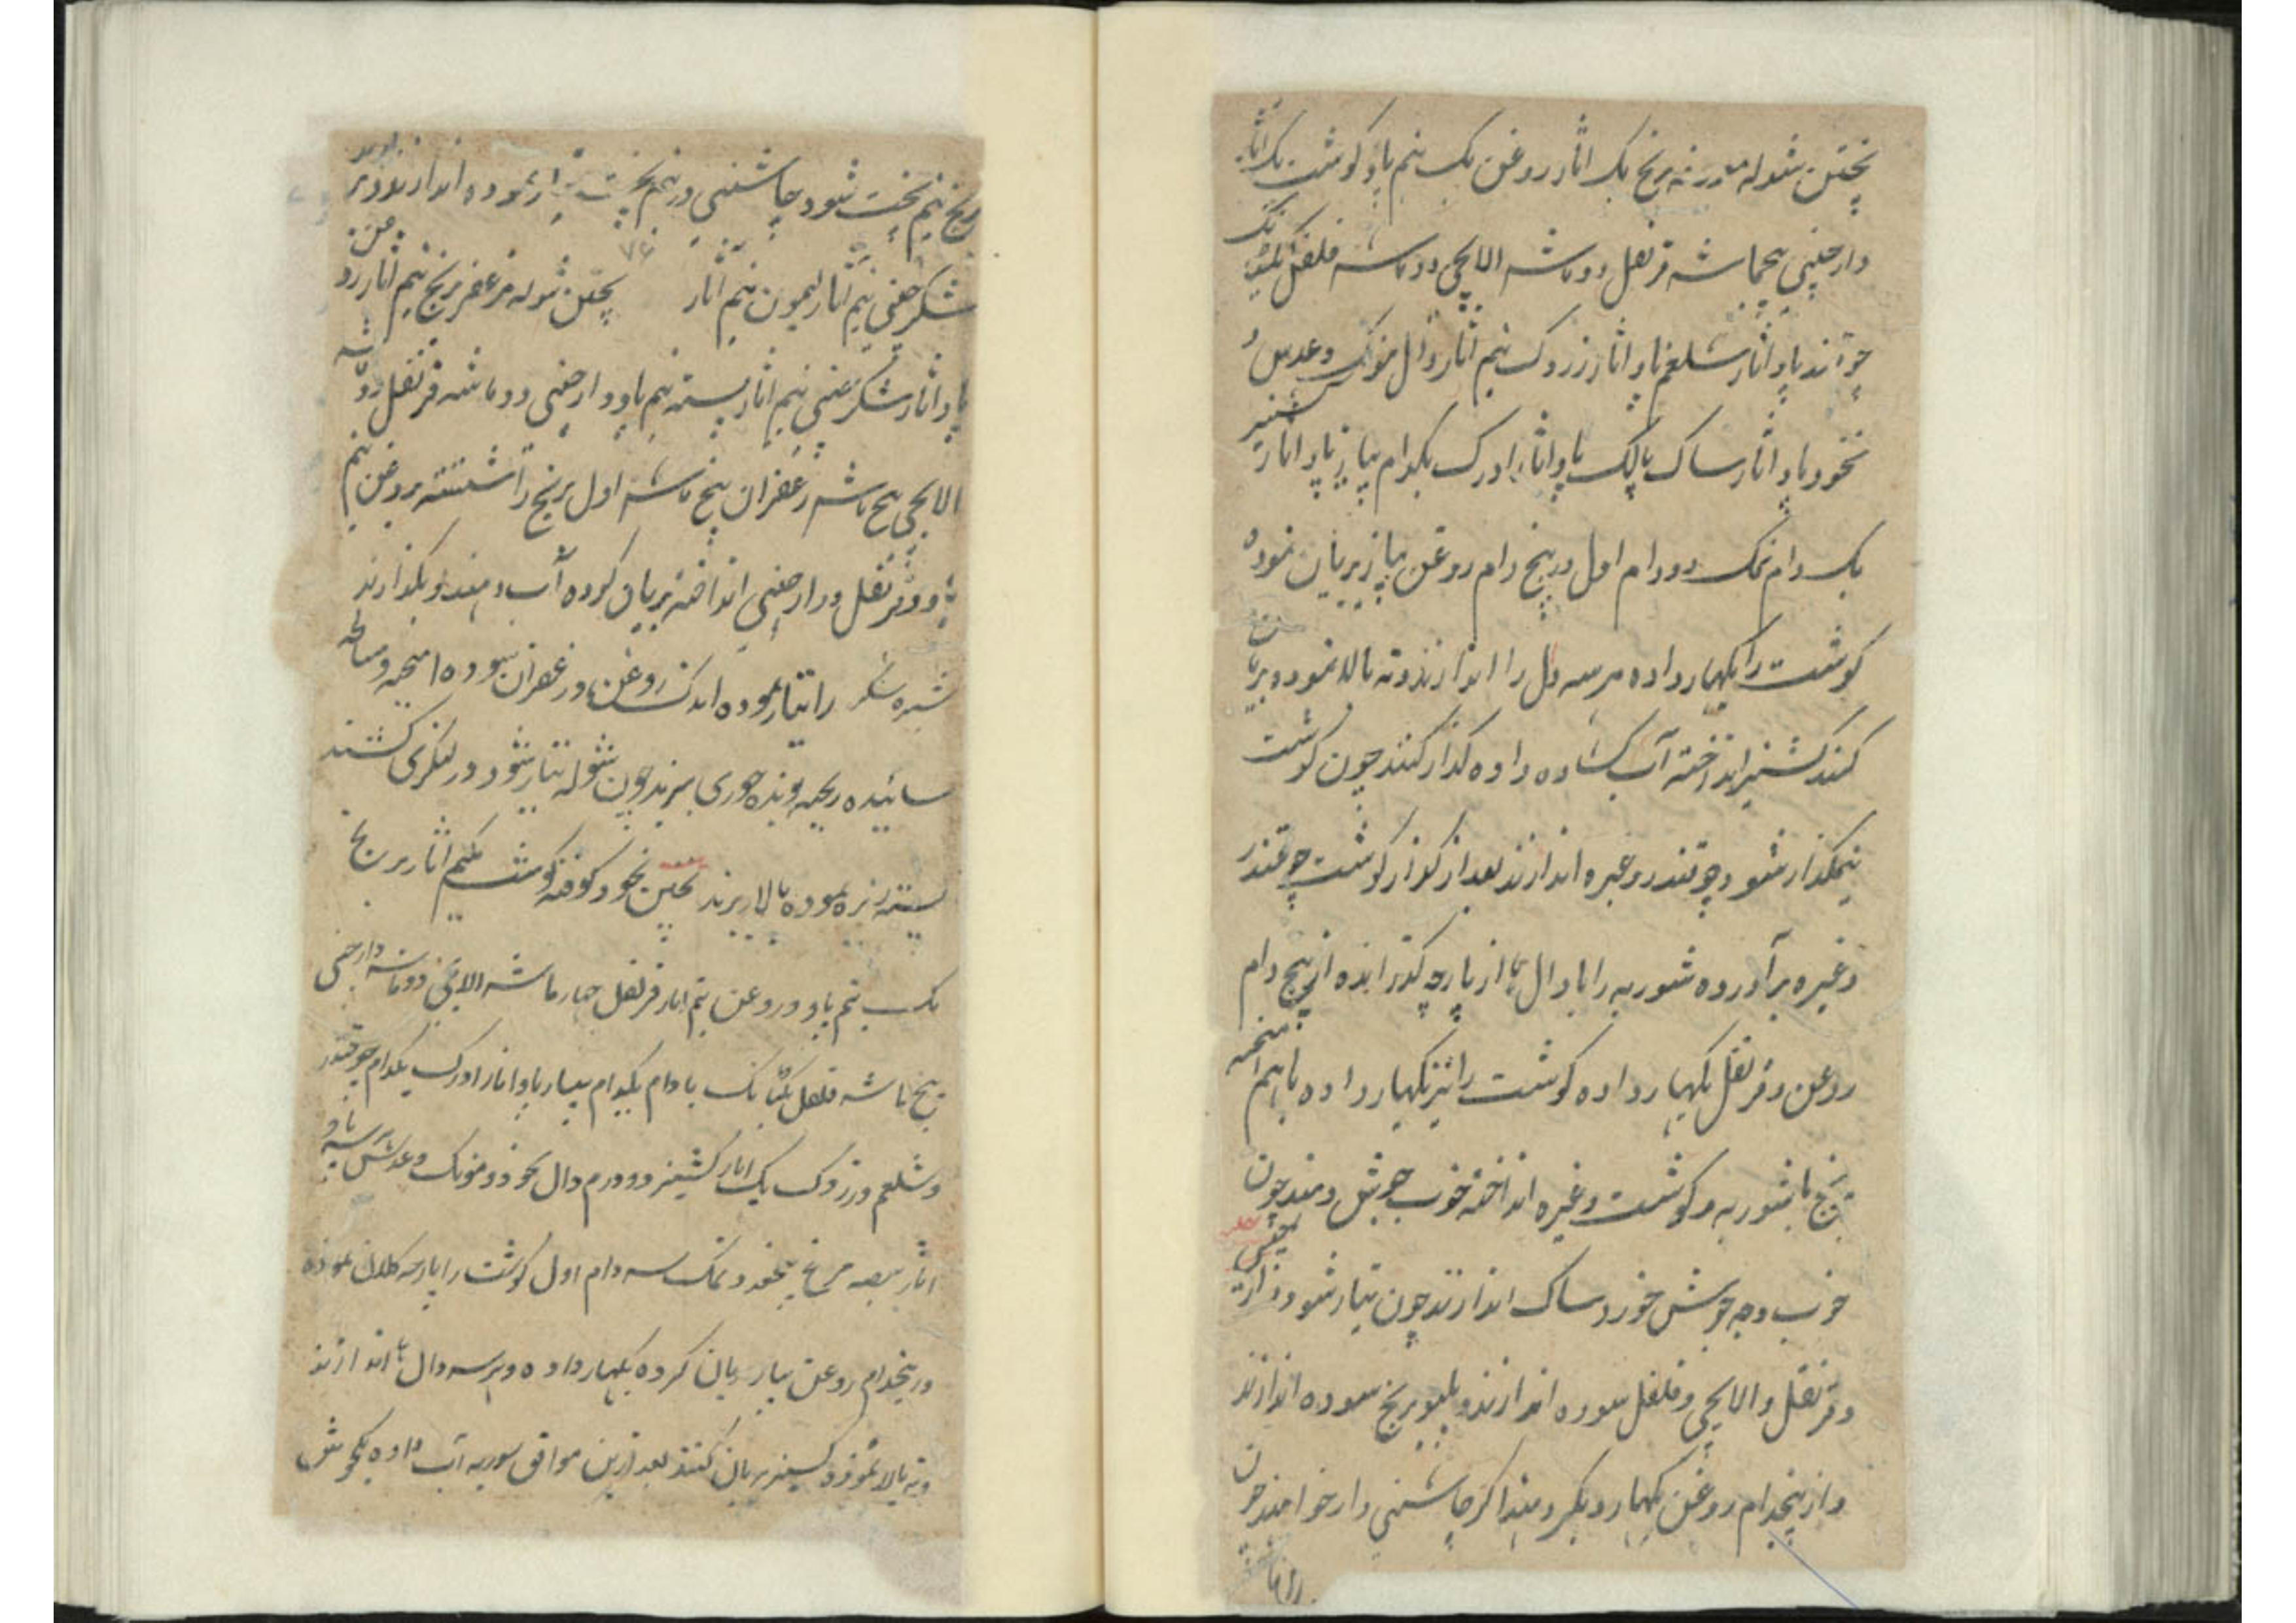 پختن شوله مدرنه برنج یک اثار روغن یک نیم پاو گوشت یک اثار
دارچینی پنجماشه قرنفل دو ماشه الایچی دو ماشه فلفل یکتنک
چوقندر پاو اثار شلغم پاو اثار زردک نیم اثار دال مونک و عدس و
نخود پاو اثار ساک پالک پاو اثار ادرک یکدام پیاز پاو اثار کشنیز
یک دام نمک دو دام اول در پنج دام روغن پیاز بریان نموده
گوشت را بگهار داده هر سه دال را اندازند و ته بالا نموده بریان
کنند کشنیز انداخته آب کشاده داده گداز کنند چون گوشت
نیمگداز شود چوقندر وغیره اندازند بعد از گداز گوشت چوقندر
وغیره برآورده شوربه را با دال‌ها از پارچه گذرانیده از پنج دام
روغن و قرنفل بگهار داده گوشت را نیز بگهار داده باهم آمیخته
برنج با شوربه و گوشت وغیره انداخته خوب جوش دهند چون
خوب وجه جوش خورد ساک اندازند چون تیار شود دارچینی
و قرنفل و الایچی و فلفل سوده اندازند و پلیو برنج سوده اندازند
و از پنجدام روغن بگهار دیگر دهند اگر چاشنی دار خواهند چون
برنج نیم پخت شود چاشنی در نیم پخت تیار نموده اندازند
شکر چینی نیم اثار لیمون نیم اثار ۷۴ پختن شوله مزعفر برنج نیم اثار روغن
پاو اثار شکر چینی نیم اثار پسته نیم پاو دارچینی دو ماشه قرنفل دو ماشه
الایچی پنج ماشه زعفران پنج ماشه اول برنج را شسته بروغن نیم
پاو و قرنفل و دارچینی انداخته بریان کرده آب دهند و بگذارند
شیره شکر را تیار نموده اندک روغن و زعفران سوده آمیخته و مصالحه
سائیده ریخته چون شوله تیار شود در لنگری کشند
پسته ریزه نموده بالا ریزند پختن نخود کوفته گوشت یکنیم اثار برنج
یک نیم پاو و روغن نیم اثار قرنفل چهار ماشه الایچی دو ماشه دارچینی
پنج ماشه فلفل یکتانک بادام یکدام پیاز پاو اثار ادرک یکدام چوقندر
و شلغم و زردک یک اثار کشنیز دو درم دال نخود و مونک و عدس هر سه پاو
اثار بیضه مرغ پنج عدد نمک سه دام اول گوشت را پارچه کلان نموده
در پنجدام روغن پیاز بریان کرده بگهار داده و هر سه دال‌ها اندازند
و ته بالا نموده کشنیز بریان کنند بعد ازین موافق شوربه آب داده یکجوش